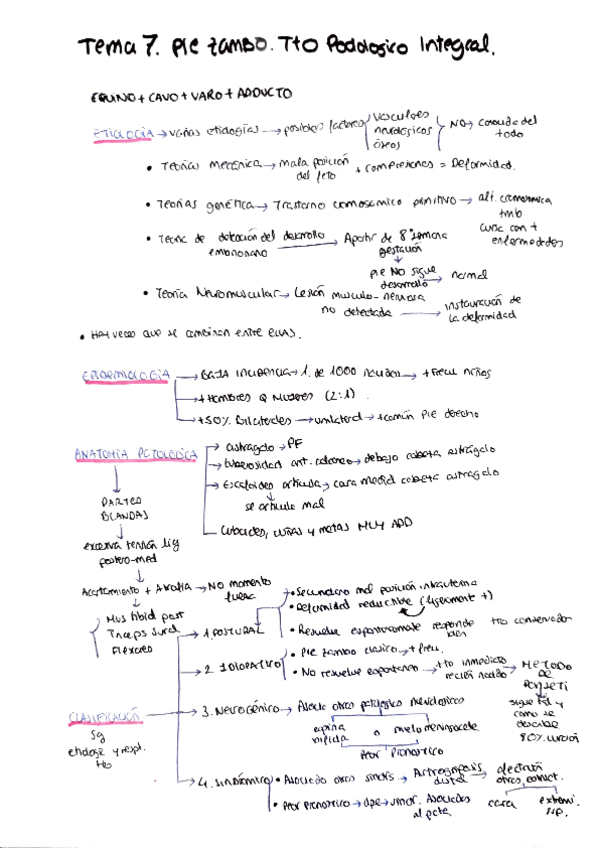 Tema 7. Pie zambo. Tto Podologico Integral.
EQUINO + CAVO + VARO + ADDUCTO
ETIOLOGÍA → varias etiologías → posibles factores
vasculares
neurológicos
óseos
NO → conocida del todo
• Teorías mecánica → mala posición del feto + compresiones = Deformidad.
• Teorías genética → Trastorno cromosómico primitivo → alt. cromosómica
tmb
cursa con +
enfermedades
• Teoría de detención del desarrollo embrionario → Apartir de 8ª semana gestación
pie NO sigue desarrollo → normal
• Teoría Neuromuscular → Lesión musculo-nerviosa no detectada → instauración de la deformidad
• Hay veces que se combinan entre ellas.
EPIDEMIOLOGÍA → BAJA INCIDENCIA → 1 de 1000 nacidos → + frecu niños
→ + HOMBRES Q MUJERES (2:1).
→ +50% Bilaterales → unilateral → + común Pie derecho
ANATOMIA PATOLOGICA
→ astrágalo → PF
→ tuberosidad ant. calcaneo → debajo cabeza astrágalo
→ Escafoides articula → cara medial cabeza astrágalo
se articula mal
Cuboides, cuñas y metas MUY ADD
PARTES
BLANDAS
excesiva tensión lig
postero-med
Acortamiento + Atrofia → No momento fuerza
Mus tibial post
Triceps sural
Flexores
CLASIFICACIÓN
Sg
etiología y resp.
tto
1. POSTURAL
• Secundario mal posición intrauterina
• Deformidad reductible (ligeramente +)
• Resuelve espontaneamente responde bien tto conservador
2. IDIOPATICO
• Pie zambo clasico → + frecu.
• No resuelve espontaneo → tto inmediato recién nacido → METODO DE PONSETI
sigue tal y
como se
describe
90% curación
3. Neurogénico → Asocia otras patologias neurologicas
espina bifida o mielomeningocele
Peor pronostico
4. Sindrómico
• Asociado otros sindrs → Artrogriposis distal → afectación otras estruct.
cara
extremi.
sup.
• Peor pronostico → dpe → sindr. Asociados al pcte.